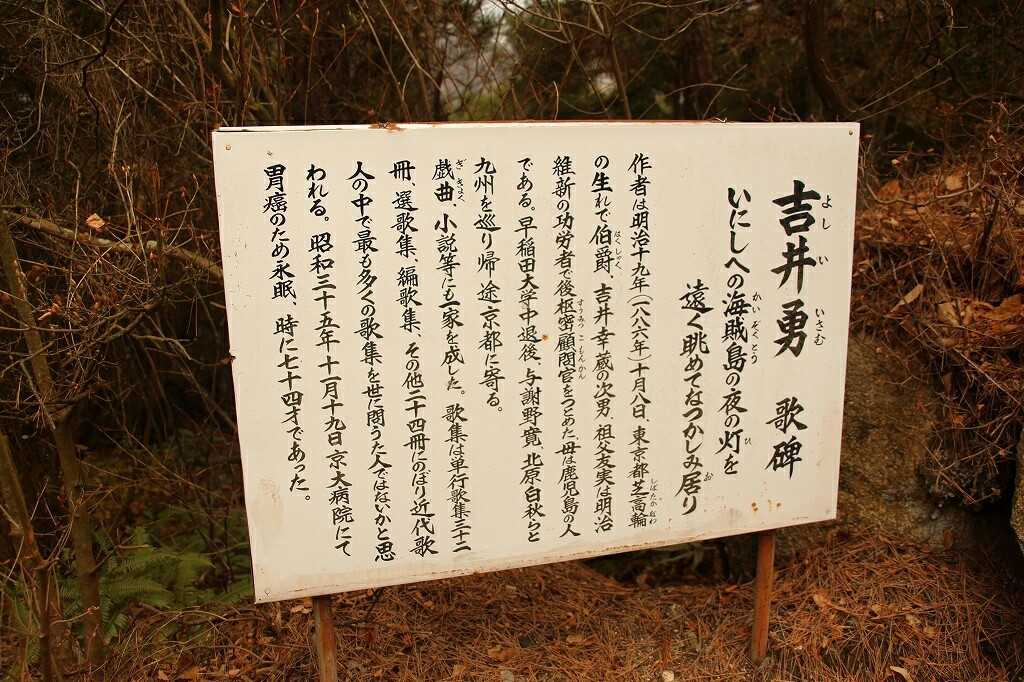 吉井勇 歌碑
いにしへの海賊島の夜の灯を
遠く眺めてなつかしみ居り
作者は明治十九年(一八八六年)十月八日、東京都芝高輪
の生れで伯爵、吉井幸蔵の次男、祖父友実は明治
維新の功労者で後枢密顧問官をつとめた、母は鹿児島の人
である。早稲田大学中退後、与謝野寛、北原白秋らと
九州を巡り帰途京都に寄る。
戯曲、小説等にも一家を成した。歌集は単行歌集三十二
冊、選歌集、編歌集、その他二十四冊にのぼり近代歌
人の中で最も多くの歌集を世に問うた人ではないかと思
われる。昭和三十五年十一月十九日京大病院にて
胃癌のため永眠、時に七十四才であった。